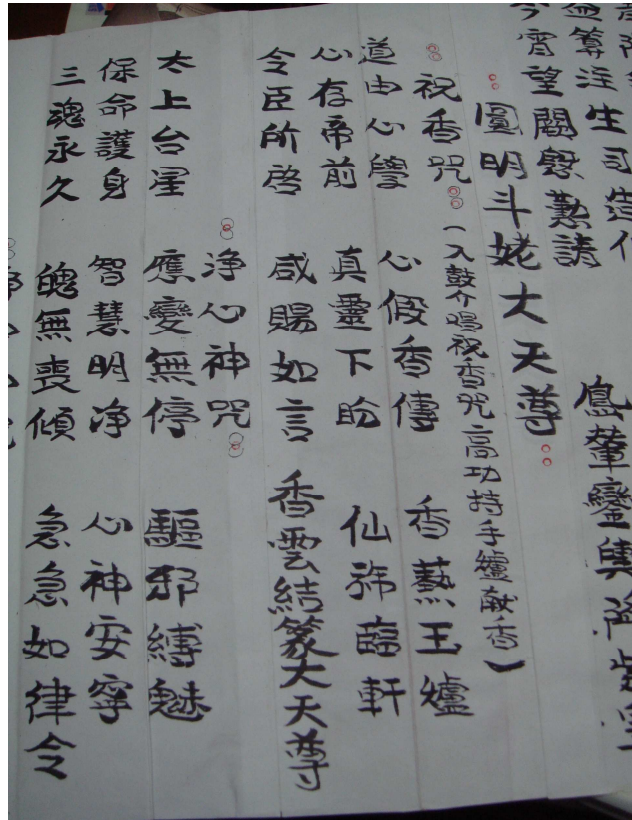 注生司造化 鳳輦鑾輿降紫
今宵望闕懇懃請
圓明斗姥大天尊
祝香咒(入鼓介唱祝香咒高功持手爐献香)
道由心學 心假香傳 香爇玉爐
心存帝前 真靈下盼 仙旆臨軒
令臣所啓 咸賜如言 香雲結篆大天尊
净心神咒
太上台星 應變無停 驅邪縛魅
保命護身 智慧明净 心神安寧
三魂永久 魄無喪傾 急急如律令